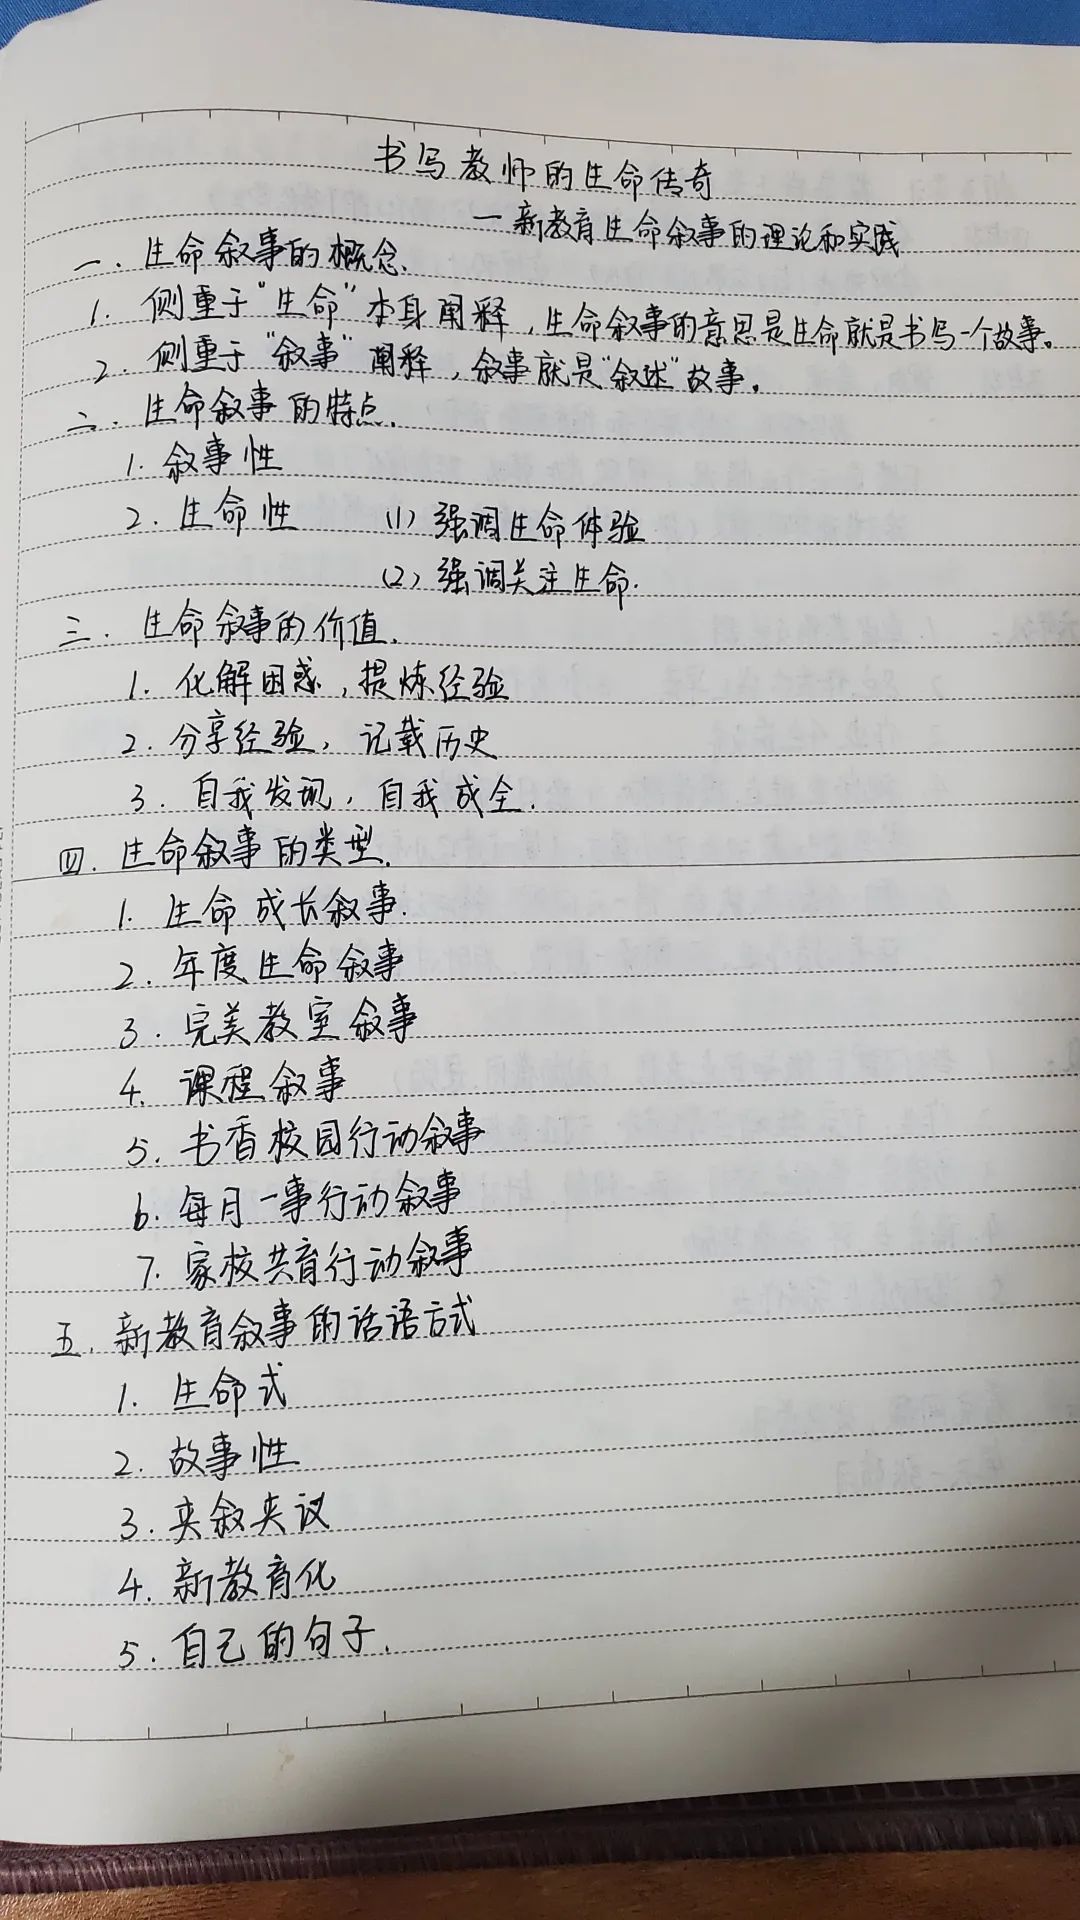 书写教师的生命传奇
—新教育生命叙事的理论和实践
一. 生命叙事的概念.
1. 侧重于“生命”本身阐释,生命叙事的意思是生命就是书写一个故事。
2. 侧重于“叙事”阐释,叙事就是“叙述”故事。
二. 生命叙事的特点.
1. 叙事性
2. 生命性 (1) 强调生命体验
(2) 强调关注生命.
三. 生命叙事的价值.
1. 化解困惑,提炼经验
2. 分享经验, 记载历史
3. 自我发现, 自我成全.
四. 生命叙事的类型.
1. 生命成长叙事.
2. 年度生命叙事
3. 完美教室叙事
4. 课程叙事
5. 书香校园行动叙事
6. 每月一事行动叙事
7. 家校共育行动叙事
五. 新教育叙事的话语方式
1. 生命式
2. 故事性
3. 夹叙夹议
4. 新教育化
5. 自己的句子.